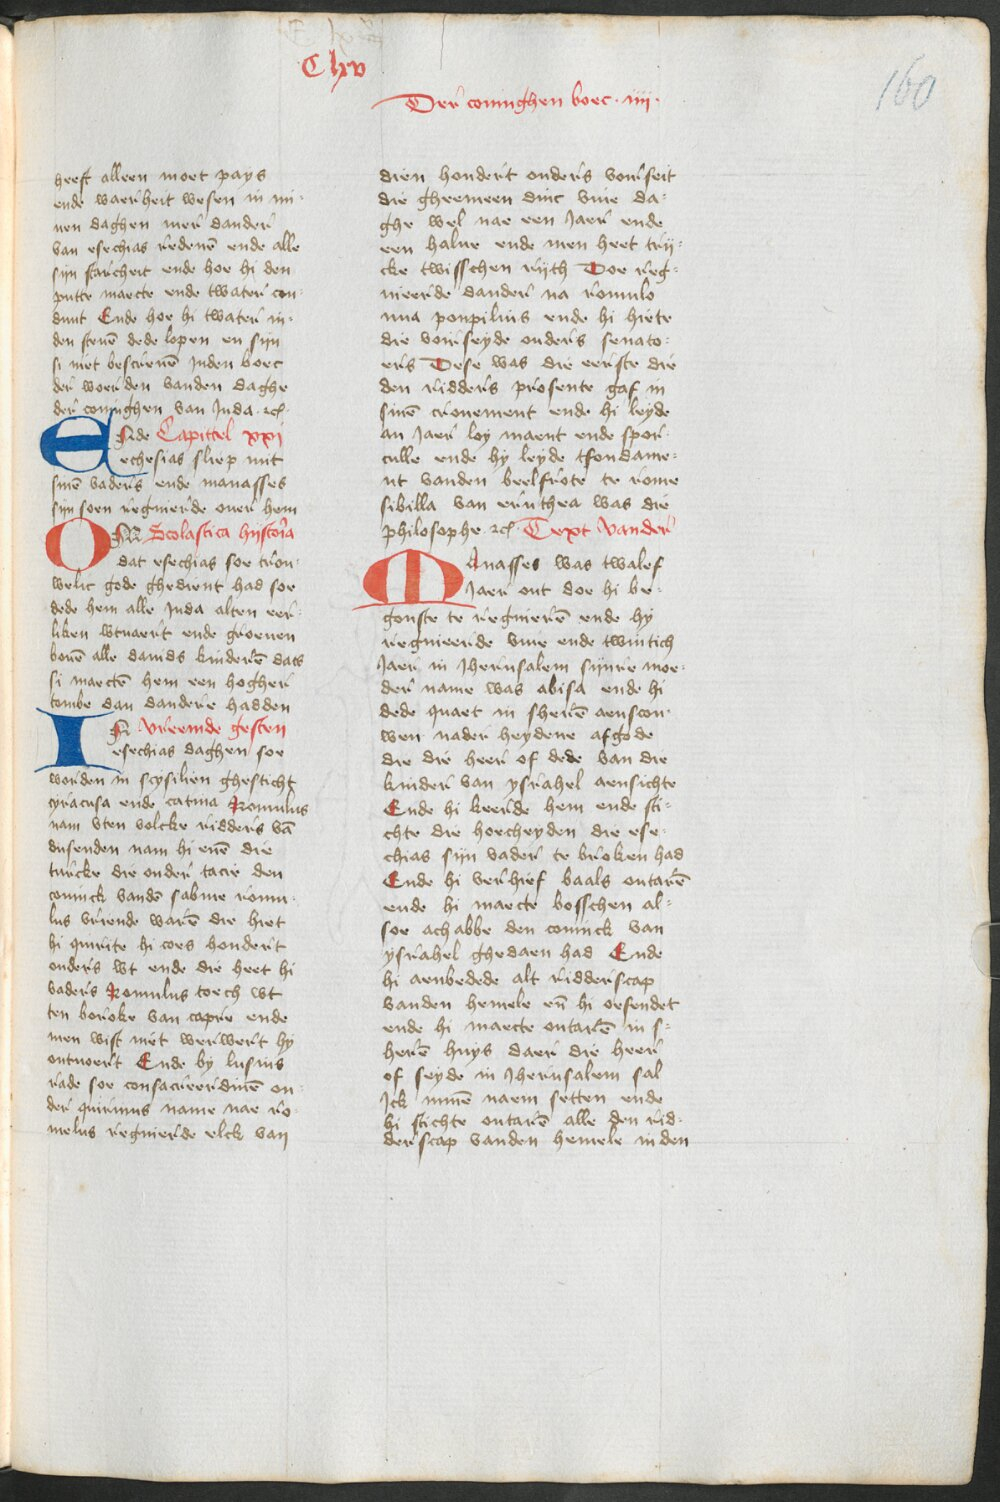 Clxv
Der coninghen boec · iiij ·
160
heeft alleen moet pays
ende waerheit wesen in mi-
nen daghen mer dander
van esechias redenē ende alle
sijn starcheit ende hoe hi den
putte maecte ende twater con-
dunt Ende hoe hi twater in-
den stenē dede lopen en sijn
si niet bescreuē Inden boec
der woerden vanden daghe
der coninghen van Juda ꝛcꝭ
ENde Capittel xxj
echesias sliep mit
sinē vaders ende manasses
sijn soen regnierde ouer hem
OM Scolastica hystoria
dat esechias soe trou-
welic gode ghedient had soe
dede hem alle Juda alten eer-
liken wtuaert ende groeuen
bouē alle dauids kinderē dats
si maectē hem een hogher
tombe dan dandere hadden
IN vreemde gesten
esechias daghen soe
worden in scysilien ghesticht
cyracusa ende catina Romulus
nam vten volcke ridders vā
dusenden nam hi enē die
turcke die onder tacie den
coninck vandē sabine romu-
lus vriende warē die hiet
hi quirite hi coes hondert
onders wt ende die heet hi
vaders Romulus toech wt
ten broke van capre ende
men wist niet werwert hy
ontuoert Ende by lusius
rade soe consacreerdmē on-
der quirinus name nae ro-
melus regnierde elck van
dien hondert onders voirseit
die ghemeen dinc viue da-
ghe wel nae een Jaer ende
een halue ende men heet trij-
cke twisschen rijth Doe reg-
nieerde dander na romulo
nua ponpilius ende hi hiete
die voirseyde onders senato-
ers Dese was die eerste die
den ridders prosente gaf in
sinē cronement ende hi leyde
an Jaer loy maent ende spor-
culle ende hy leyde tfondame-
nt vanden beelfrote te rome
sibilla van eruthea was die
philosophe ꝛcꝭ Text Vander
MAnasses was twalef
Jaer out doe hi be-
gonste te regnierē ende hy
regnieerde viue ende twintich
Jaer in Jherusalem sijnre moe-
der name was abisa ende hi
dede quaet in sherē aenscou-
wen nader heydene afgode
die die heer of dede van die
kinder van ysrahel aensichte
Ende hi keerde hem ende sti-
chte die hoecheyden die ese-
chias sijn vader te broken had
Ende hi verhief baals outarē
ende hi maecte bosschen al-
soe achabbe den coninck van
ysrahel ghedaen had Ende
hi aenbedede alt ridderscap
vanden hemele eñ hi oefendet
ende hi maecte outarē in s-
herē huys daer die heer
of seyde in Jherusalem sal
Jck minē naem setten ende
hi stichte outarē alle den rid-
derscap vanden hemele in den